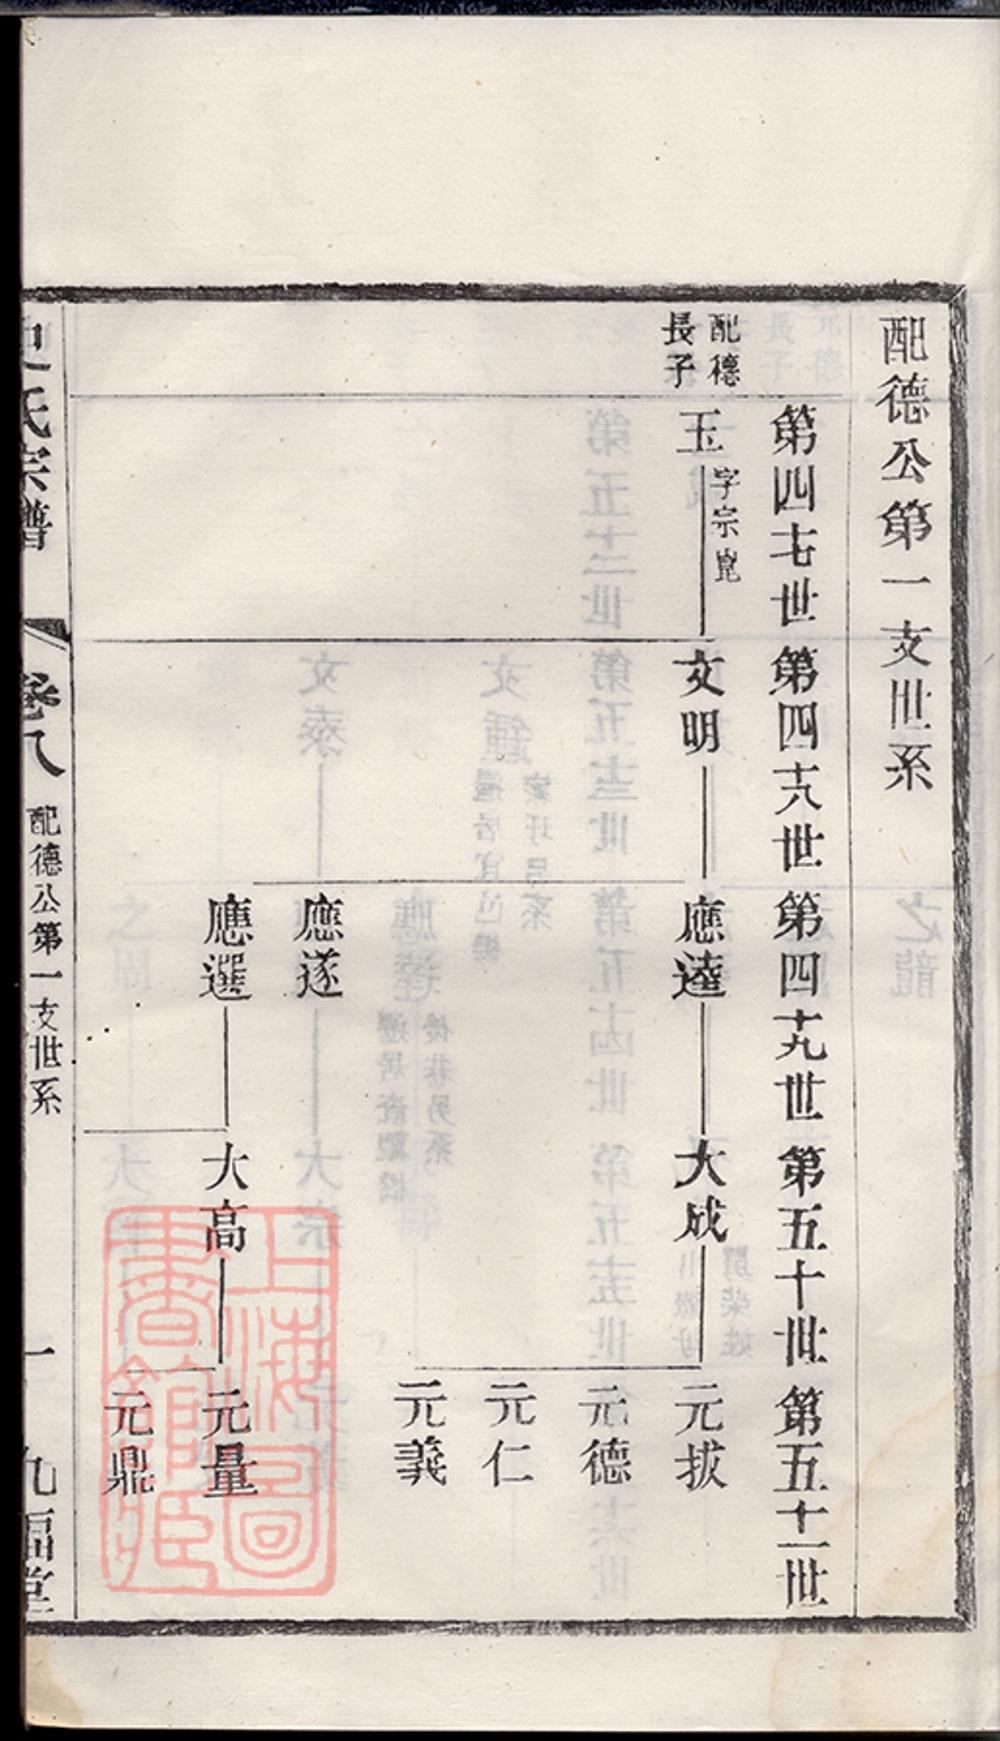 配德公第一支世系
第四七世
第四十八世
第四十九世
第五十世
第五十一世
配德
長子
玉
字宗崑
文明
應逵
大成
元拔
元德
元仁
元義
應遂
應選
大高
元量
元鼎
史氏宗譜
卷八
配德公第一支世系
一
九福堂
上海圖
書館藏